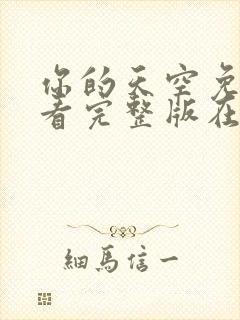 你的天空免
看完整版在
細馬信一